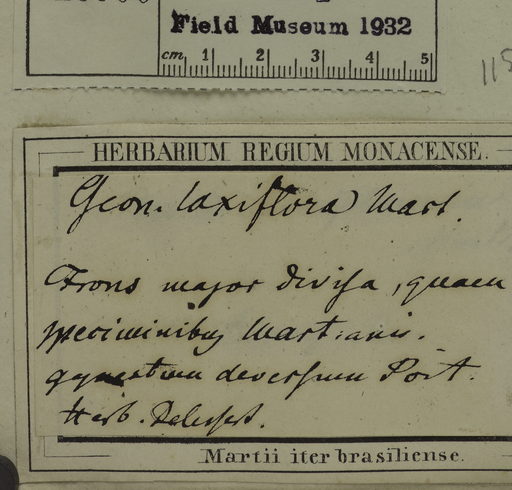 Field Museum 1932
cm 1 2 3 4 5
115
HERBARIUM REGIUM MONACENSE.
Geon. laxiflora Mart.
Frons major divisa, quam
speciminibus Martianis.
diversum Poit.
Herb. Delessert.
Martii iter brasiliense.